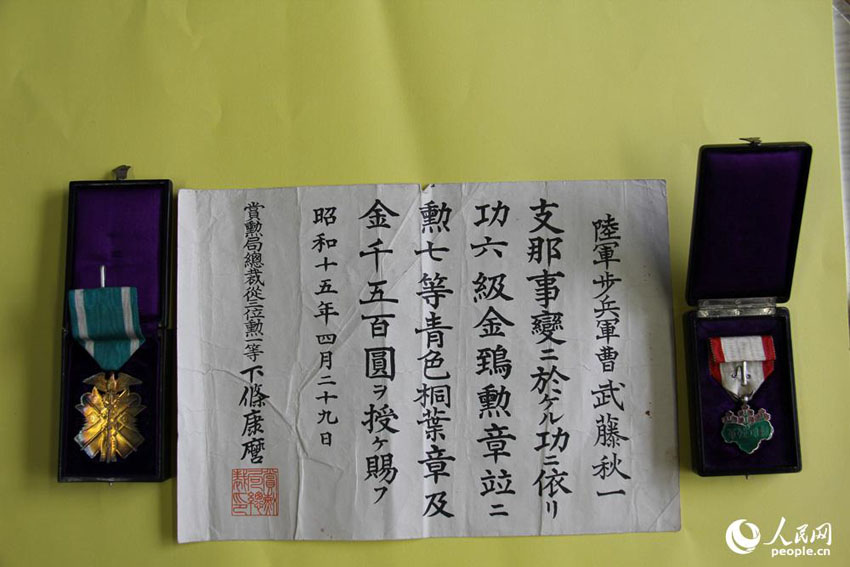 陸軍步兵軍曹 武藤秋一
支那事變ニ於ケル功ニ依リ
功六級金鵄勲章竝ニ
勲七等青色桐葉章及
金千五百圓ヲ授ケ賜フ
昭和十五年四月二十九日
賞勲局總裁從三位勲一等 下條康麿
人民网
people.cn